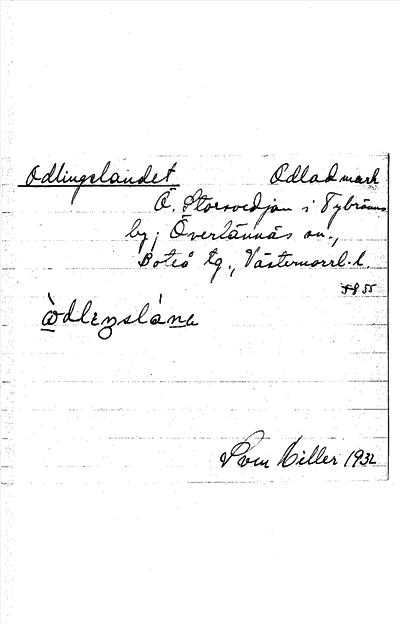 Odlingslandet Odlad mark
Ö. Storsvedjan i Tybränns
by; Överlännäs sn.,
Boteå tg., Västernorrl. l.
òdlɩŋslàna
Sven Hiller 1932